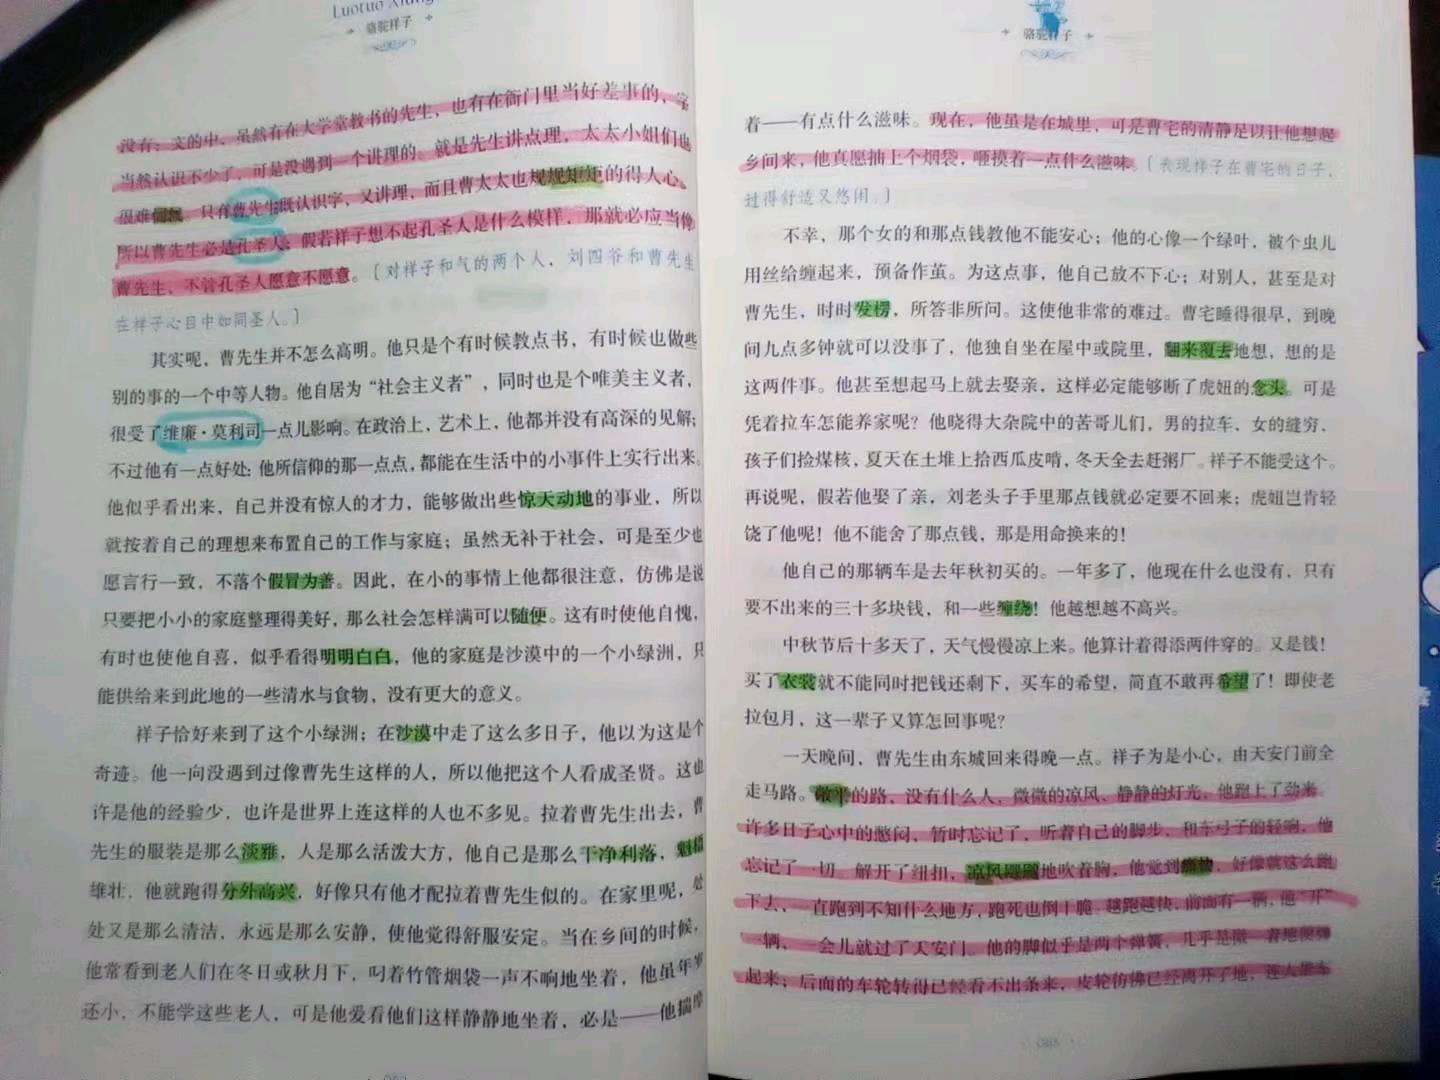 Luotuo Xiang
骆驼祥子
没有；文的中，虽然有在大学堂教书的先生，也有在衙门里当好差事的，字
当然认识不少了，可是没遇到一个讲理的。就是先生讲点理，太太小姐们也
很难伺候。只有曹先生既认识字，又讲理，而且曹太太也规规矩矩的得人心。
所以曹先生必是孔圣人；假若祥子想不起孔圣人是什么模样，那就必应当像
曹先生，不管孔圣人愿意不愿意。〔对祥子和气的两个人，刘四爷和曹先生
在祥子心目中如同圣人。〕
其实呢，曹先生并不怎么高明。他只是个有时候教点书，有时候也做些
别的事的一个中等人物。他自居为“社会主义者”，同时也是个唯美主义者，
很受了维廉·莫利司一点儿影响。在政治上，艺术上，他都并没有高深的见解；
不过他有一点好处：他所信仰的那一点点，都能在生活中的小事件上实行出来。
他似乎看出来，自己并没有惊人的才力，能够做出些惊天动地的事业，所以
就按着自己的理想来布置自己的工作与家庭；虽然无补于社会，可是至少也
愿言行一致，不落个假冒为善。因此，在小的事情上他都很注意，仿佛是说
只要把小小的家庭整理得美好，那么社会怎样满可以随便。这有时使他自愧，
有时也使他自喜，似乎看得明明白白，他的家庭是沙漠中的一个小绿洲，只
能供给来到此地的一些清水与食物，没有更大的意义。
祥子恰好来到了这个小绿洲；在沙漠中走了这么多日子，他以为这是个
奇迹。他一向没遇到过像曹先生这样的人，所以他把这个人看成圣贤。这也
许是他的经验少，也许是世界上连这样的人也不多见。拉着曹先生出去，曹
先生的服装是那么淡雅，人是那么活泼大方，他自己是那么干净利落，魁梧
雄壮，他就跑得分外高兴，好像只有他才配拉着曹先生似的。在家里呢，处
处又是那么清洁，永远是那么安静，使他觉得舒服安定。当在乡间的时候，
他常看到老人们在冬日或秋月下，叼着竹管烟袋一声不响地坐着，他虽年岁
还小，不能学这些老人，可是他爱看他们这样静静地坐着，必是——他揣摩
骆驼祥子
着——有点什么滋味。现在，他虽是在城里，可是曹宅的清静足以让他想起
乡间来，他真愿抽上个烟袋，咂摸着一点什么滋味。〔表现祥子在曹宅的日子，
过得舒适又悠闲。〕
不幸，那个女的和那点钱教他不能安心；他的心像一个绿叶，被个虫儿
用丝给缠起来，预备作茧。为这点事，他自己放不下心；对别人，甚至是对
曹先生，时时发愣，所答非所问。这使他非常的难过。曹宅睡得很早，到晚
间九点多钟就可以没事了，他独自坐在屋中或院里，翻来覆去地想，想的是
这两件事。他甚至想起马上就去娶亲，这样必定能够断了虎妞的念头。可是
凭着拉车怎能养家呢？他晓得大杂院中的苦哥儿们，男的拉车，女的缝穷，
孩子们捡煤核，夏天在土堆上拾西瓜皮啃，冬天全去赶粥厂。祥子不能受这个。
再说呢，假若他娶了亲，刘老头子手里那点钱就必定要不回来；虎妞岂肯轻
饶了他呢！他不能舍了那点钱，那是用命换来的！
他自己的那辆车是去年秋初买的。一年多了，他现在什么也没有，只有
要不出来的三十多块钱，和一些缠绕！他越想越不高兴。
中秋节后十多天了，天气慢慢凉上来。他算计着得添两件穿的。又是钱！
买了衣裳就不能同时把钱还剩下，买车的希望，简直不敢再希望了！即使老
拉包月，这一辈子又算怎回事呢？
一天晚间，曹先生由东城回来得晚一点。祥子为是小心，由天安门前全
走马路。敞平的路，没有什么人，微微的凉风，静静的灯光，他跑上了劲来。
许多日子心中的憋闷，暂时忘记了，听着自己的脚步，和车弓子的轻响，他
忘记了一切。解开了纽扣，凉风飕飕地吹着胸，他觉到痛快，好像就这么跑
下去，一直跑到不知什么地方，跑死也倒干脆。越跑越快，前面有一辆，他“开”
一辆，一会儿就过了天安门。他的脚似乎是两个弹簧，几乎是微一着地便弹
起来；后面的车轮转得已经看不出条来，皮轮仿佛已经离开了地，连人带车